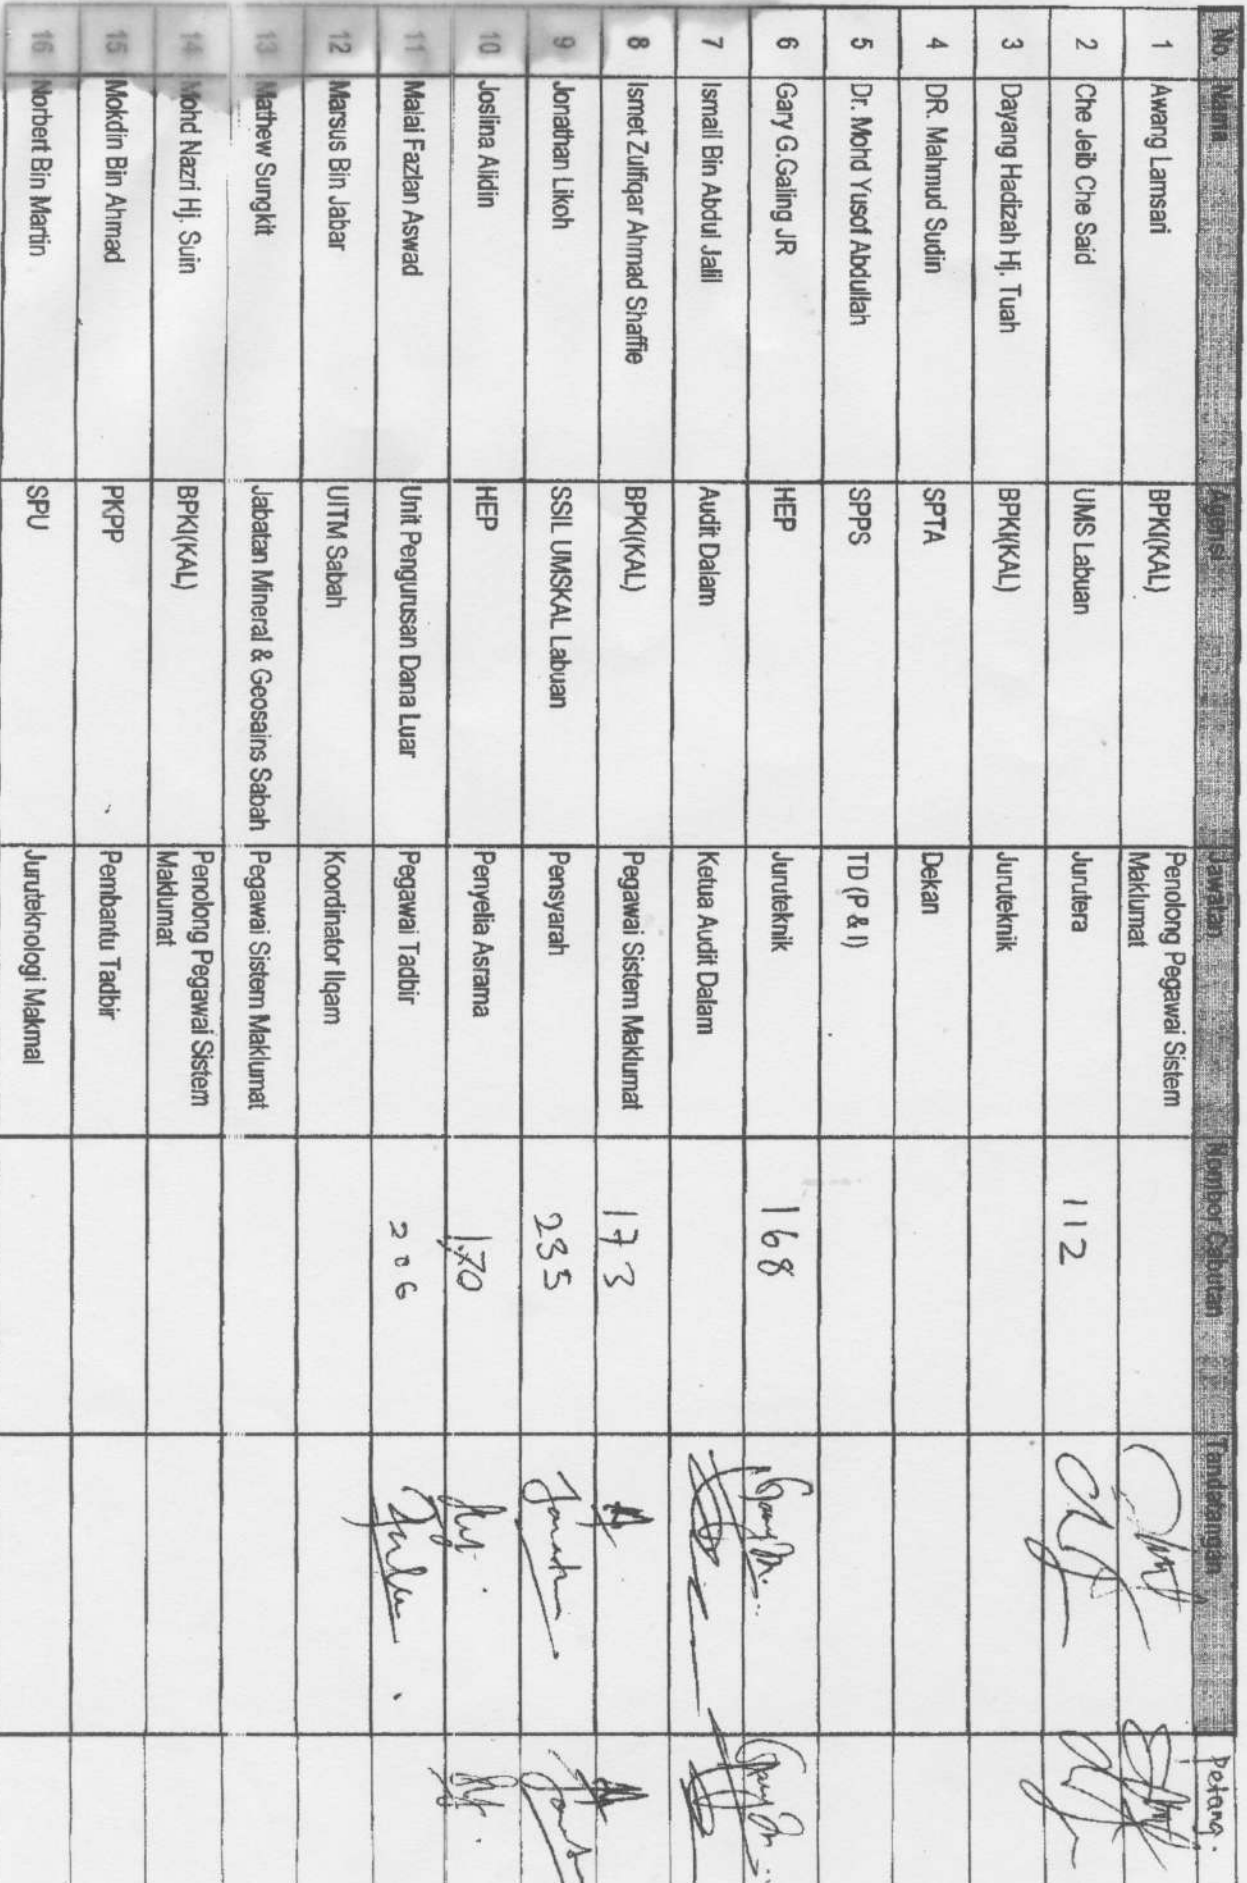 No. Nama Agensi Jawatan Nombor Cabutan Tandatangan Petang.
1 Awang Lamsari BPKI(KAL) Penolong Pegawai Sistem
Maklumat
2 Che Jeib Che Said UMS Labuan Jurutera 112
3 Dayang Hadizah Hj. Tuah BPKI(KAL) Juruteknik
4 DR. Mahmud Sudin SPTA Dekan
5 Dr. Mohd Yusof Abdullah SPPS TD (P & I)
6 Gary G.Galing JR HEP Juruteknik 168
7 Ismail Bin Abdul Jalil Audit Dalam Ketua Audit Dalam
8 Ismet Zulfiqar Ahmad Shaffie BPKI(KAL) Pegawai Sistem Maklumat 173
9 Jonathan Likoh SSIL UMSKAL Labuan Pensyarah 235
10 Joslina Alidin HEP Penyelia Asrama 170
11 Malai Fazlan Aswad Unit Pengurusan Dana Luar Pegawai Tadbir 206
12 Marsus Bin Jabar UITM Sabah Koordinator Ilqam
13 Mathew Sungkit Jabatan Mineral & Geosains Sabah Pegawai Sistem Maklumat
14 Mohd Nazri Hj. Suin BPKI(KAL) Penolong Pegawai Sistem
Maklumat
15 Mokdin Bin Ahmad PKPP Pembantu Tadbir
16 Norbert Bin Martin SPU Juruteknologi Makmal